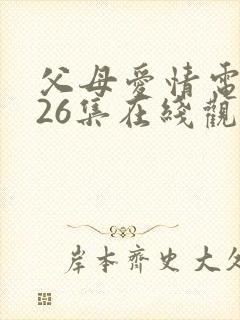 父母愛情電
26集在綫觀
岸本齊史大久